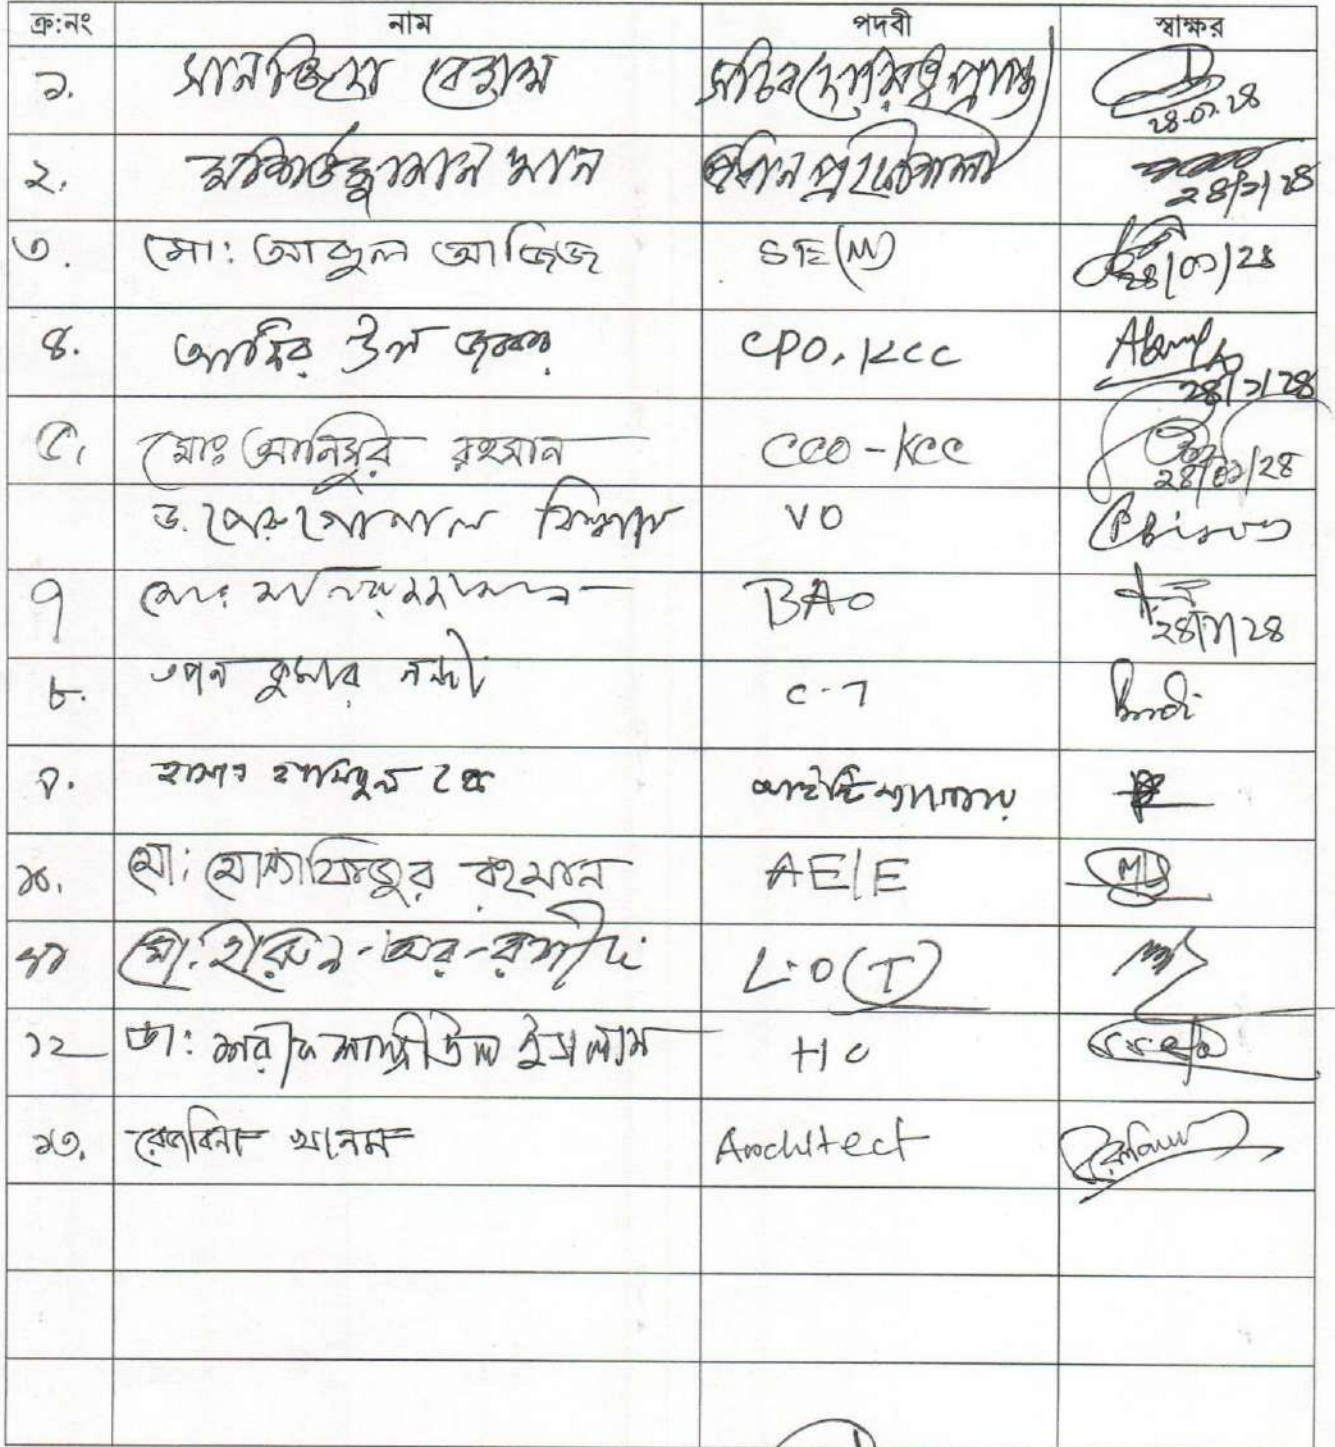 ক্র:নং নাম পদবী স্বাক্ষর
১. সানজিদা বেগম সচিব (দায়িত্বপ্রাপ্ত) ২৪-০১-২৪
২. মশিউজ্জামান খান প্রধান প্রকৌশলী ২৪/১/২৪
৩. মো: আব্দুল আজিজ SE(M) ২৪/০১/২৪
৪. আবির উল জব্বার CPO, KCC ২৪/১/২৪
৫. মোঃ আনিসুর রহমান CCO-KCC ২৪/০১/২৪
ড. পেরু গোপাল বিশ্বাস VO
৭ মোঃ BAO ২৪/১/২৪
৮. তপন কুমার নন্দী C-T
৯. হাসান হাসিবুল হক আইটি ম্যানেজার
১০. মো: মোস্তাফিজুর রহমান AE/E
১১ মো: হারুন-অর-রশীদ L.O(T)
১২ ডা: শরীফ শাম্মীউল ইসলাম HO
১৩. রেজবিনা খানম Architect